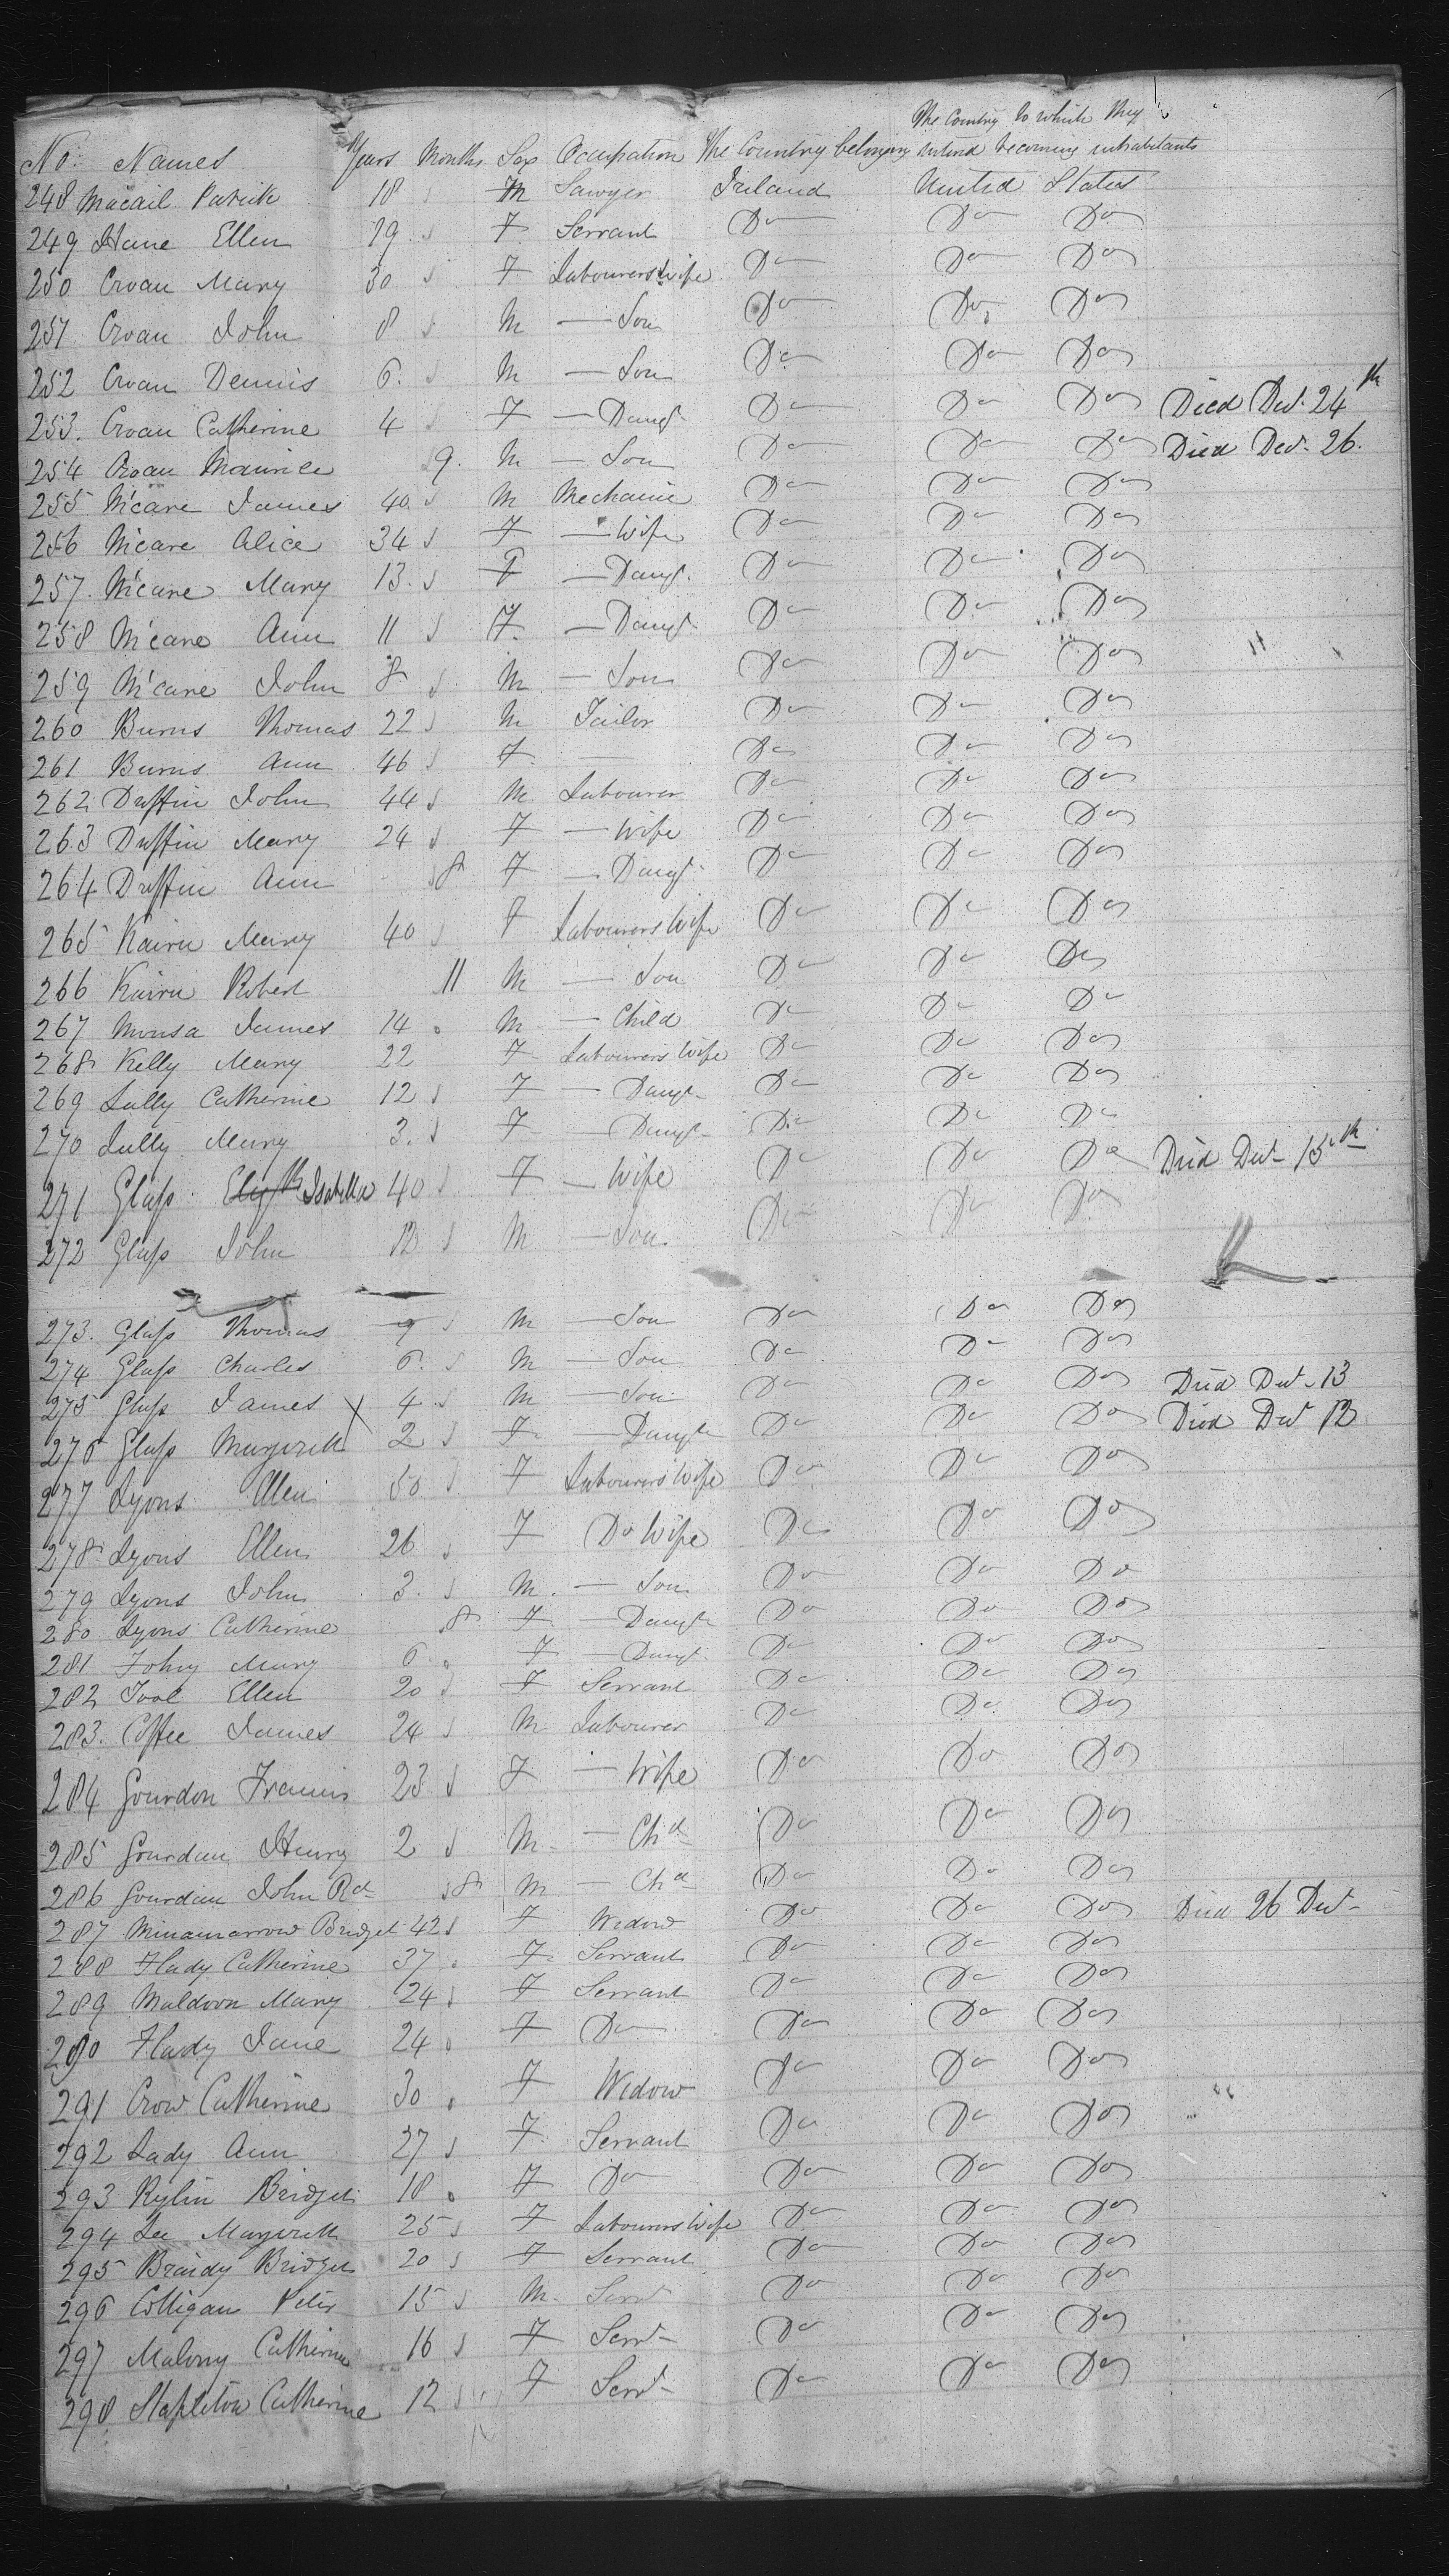 The Country to which they
No. Names Years Months Sex Occupation The Country belonging intend becoming inhabitants
248 Macail Patrick 18 M Sawyer Ireland United States
249 Hane Ellen 29 F Servant Do Do Do
250 Croan Mary 30 F Labourers Wife Do Do Do
251 Croan John 8 M — Son Do Do Do
252 Croan Dennis 6 M — Son Do Do Do
253 Croan Catherine 4 F — Daugt Do Do Do Died Decr 24th
254 Croan Maurice 9 M — Son Do Do Do Died Decr 26
255 Mcane James 40 M Mechanic Do Do Do
256 Mcane Alice 34 F — Wife Do Do Do
257 Mcane Mary 13 F — Daugt Do Do Do
258 Mcane Ann 11 F — Daugt Do Do Do
259 Mcane John 8 M — Son Do Do Do
260 Burns Thomas 22 M Tailor Do Do Do
261 Burns Ann 46 F — Do Do Do
262 Duffin John 44 M Labourer Do Do Do
263 Duffin Mary 24 F — Wife Do Do Do
264 Duffin Ann 8 F — Daugt Do Do Do
265 Kairn Mary 40 F Labourers Wife Do Do Do
266 Kairn Robert 11 M — Son Do Do Do
267 James 14 M — Child Do Do Do
268 Kelly Mary 22 F Labourers Wife Do Do Do
269 Lully Catherine 12 F — Daugt Do Do Do
270 Lully Mary 3 F — Daugt Do Do Do
271 Glass Elizth Isabella 40 F — Wife Do Do Do Died Decr 15th
272 Glass John 12 M — Son Do Do Do
273 Glass Thomas 9 M — Son Do Do Do
274 Glass Charles 6 M — Son Do Do Do
275 Glass James X 4 M — Son Do Do Do Died Decr 13
276 Glass Margarett 2 F — Daugt Do Do Do Died Decr 12
277 Lyons Ellen 50 F Labourers Wife Do Do Do
278 Lyons Ellen 26 F Do Wife Do Do Do
279 Lyons John 3 M — Son Do Do Do
280 Lyons Catherine 8 F — Daugt Do Do Do
281 Fohy Mary 6 F — Daugt Do Do Do
282 Tool Ellen 20 F Servant Do Do Do
283 Coffee James 24 M Labourer Do Do Do
284 Gourdon Francis 23 F — Wife Do Do Do
285 Gourdan Henry 2 M — Chd Do Do Do
286 Gourdan John Rd 8 M — Chd Do Do Do
287 Minamarrow Bridget 42 F Widow Do Do Do Died 26 Decr
288 Flady Catherine 37 F Servant Do Do Do
289 Muldoon Mary 24 F Servant Do Do Do
290 Flady Jane 24 F Do Do Do Do
291 Crow Catherine 30 F Widow Do Do Do
292 Lady Ann 27 F Servant Do Do Do
293 Rylin Bridget 18 F Do Do Do Do
294 Lee Margarett 25 F Labourers Wife Do Do Do
295 Braidy Bridget 20 F Servant Do Do Do
296 Colligan Peter 15 M Servt Do Do Do
297 Malony Catherine 16 F Servt Do Do Do
298 Stapleton Catherine 12 F Servt Do Do Do